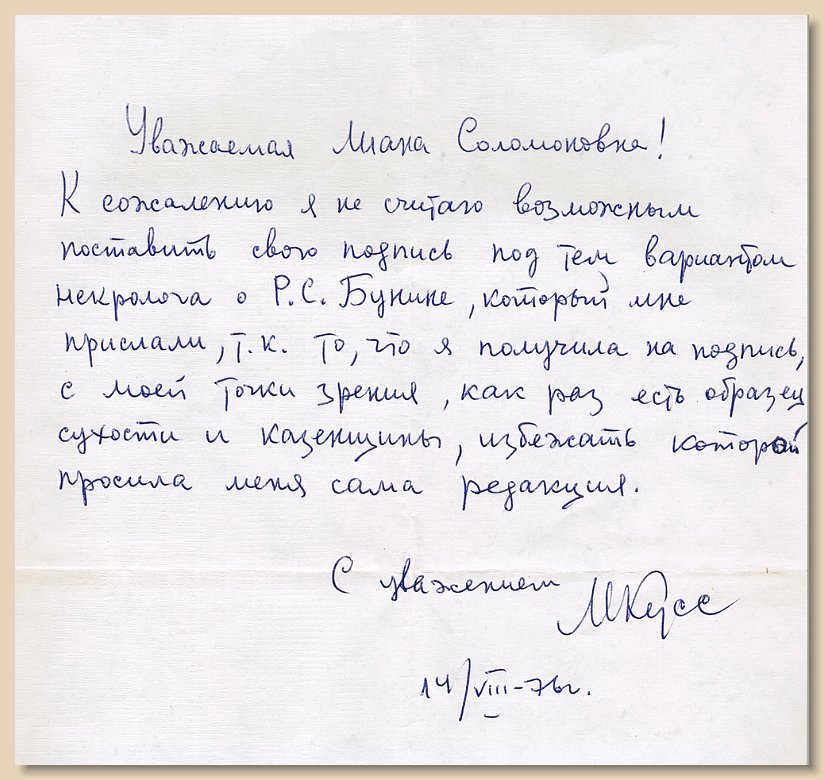 Уважаемая Лиана Соломоновна!
К сожалению я не считаю возможным
поставить свою подпись под тем вариантом
некролога о Р.С. Бунине, который мне
прислали, т.к. то, что я получила на подпись,
с моей точки зрения, как раз есть образец
сухости и казенщины, избежать которой
просила меня сама редакция.
С уважением МКусс
14/VIII-76г.